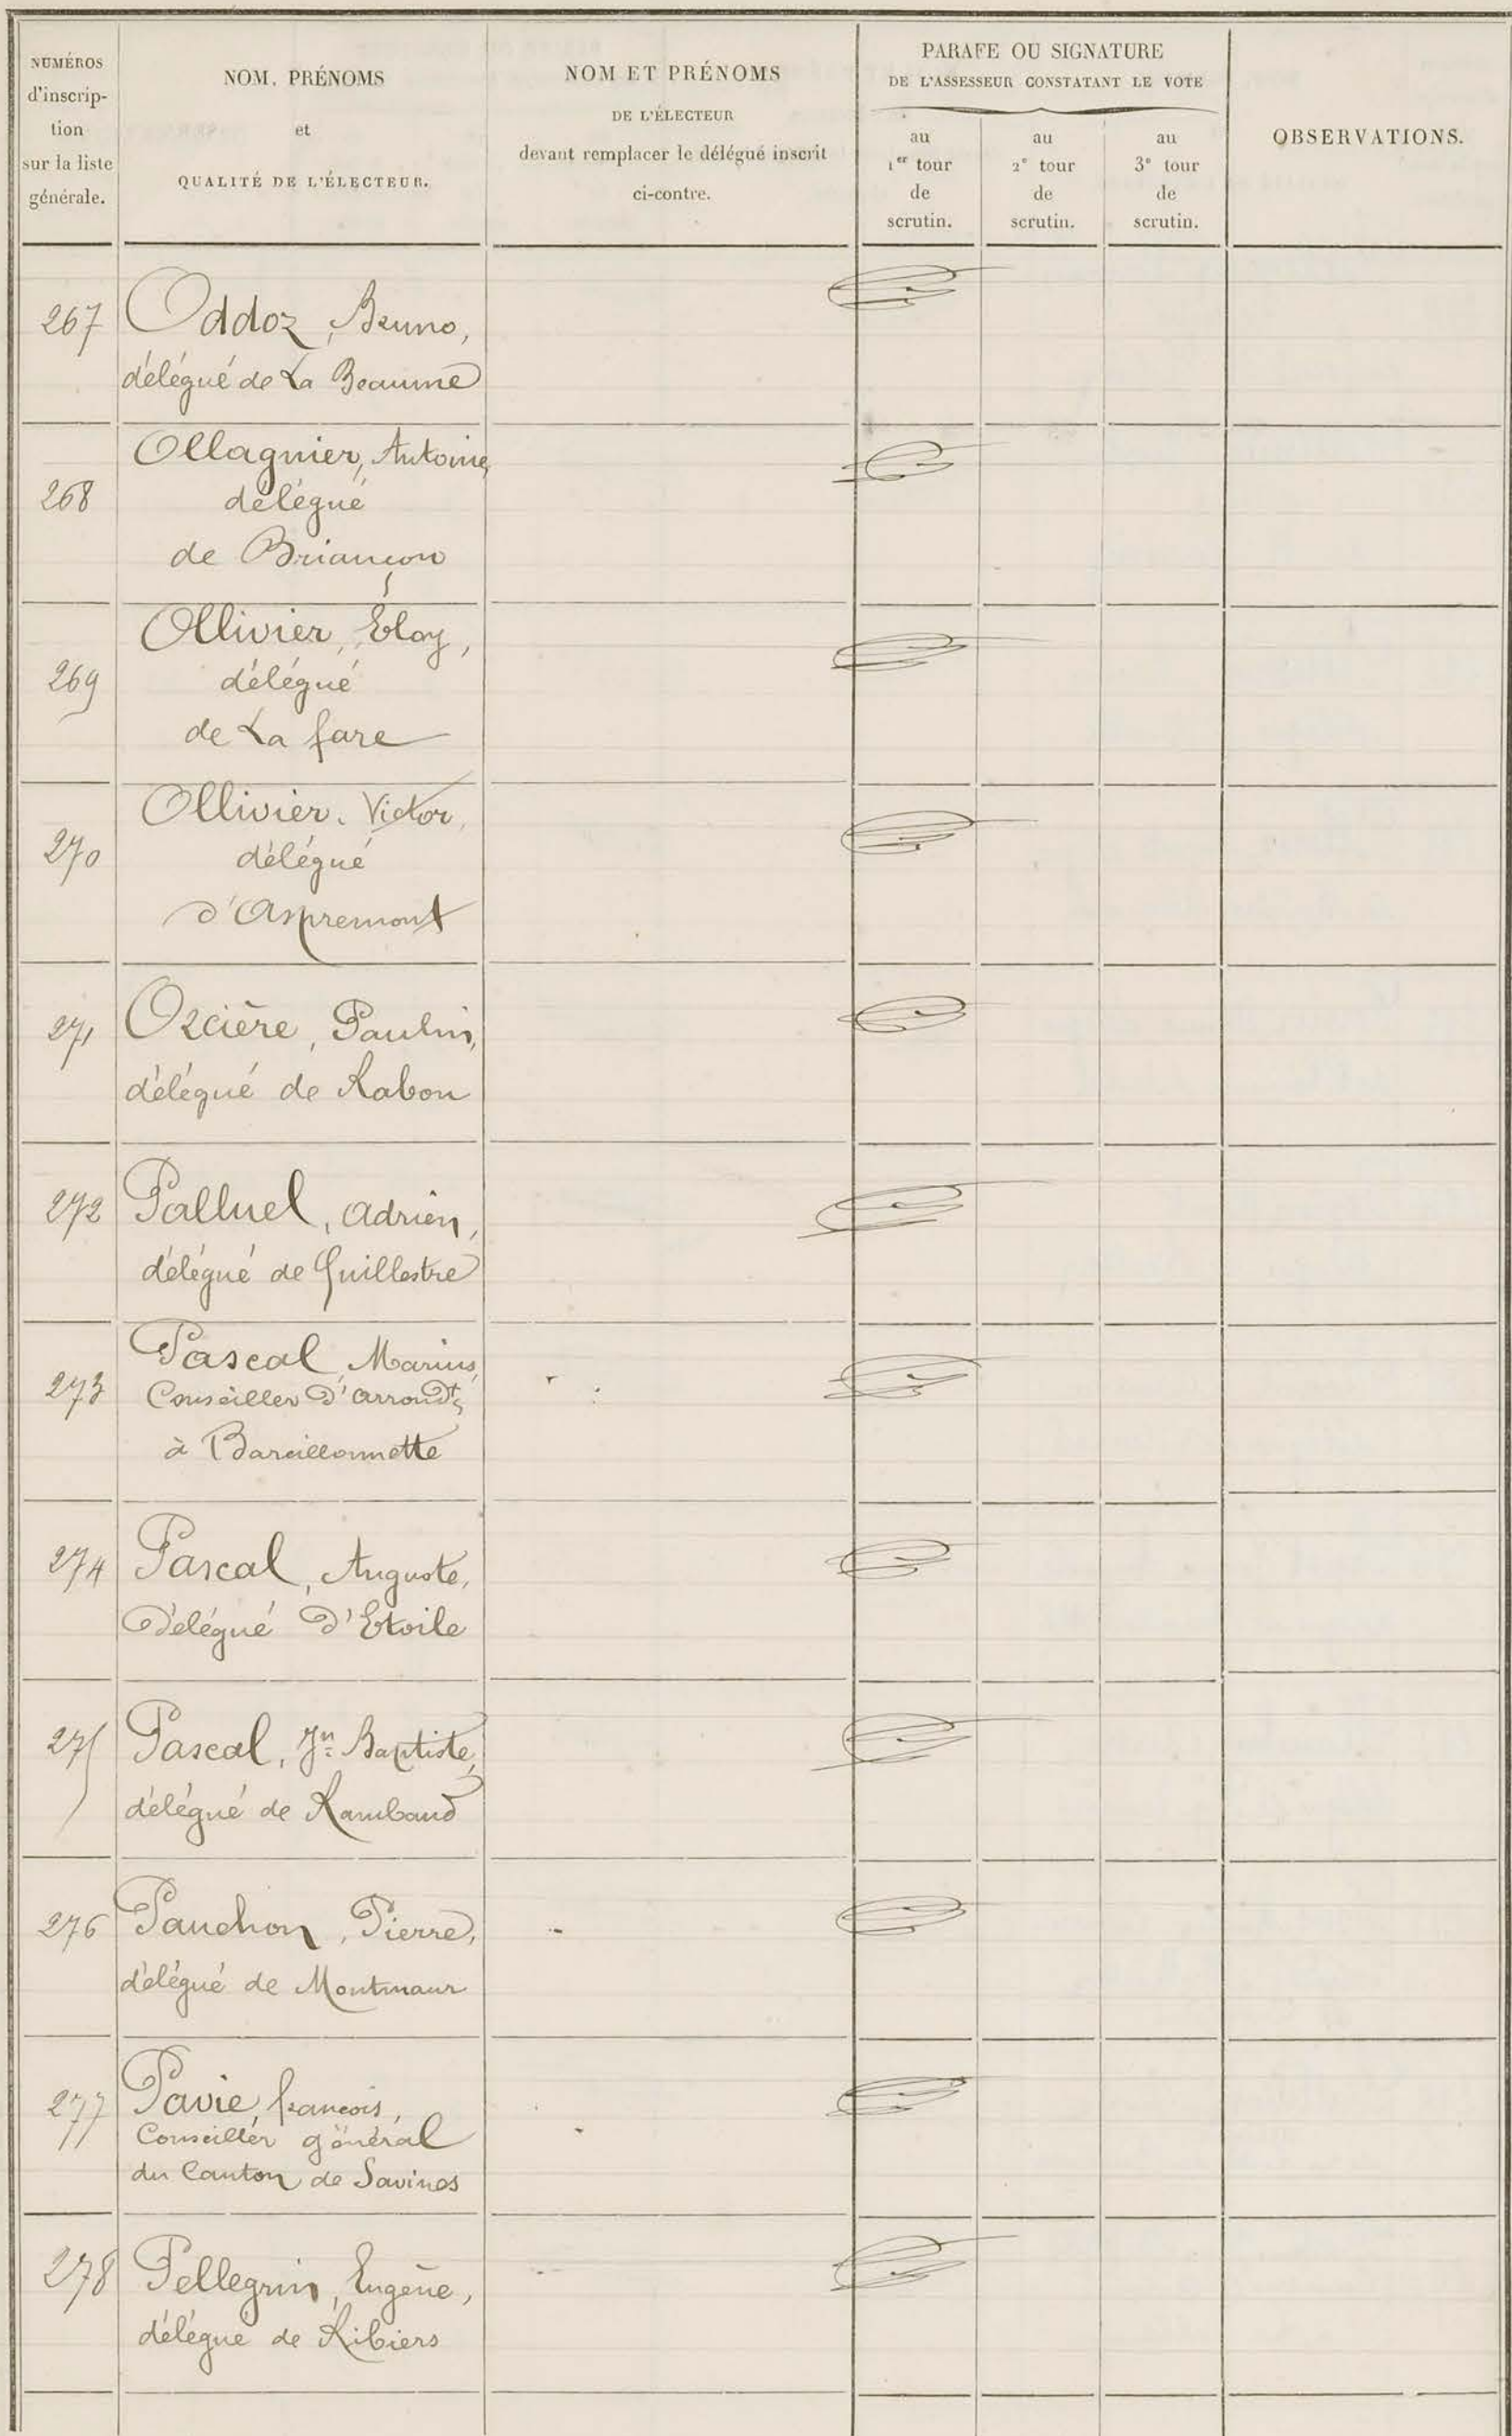 NUMÉROS
d'inscrip-
tion
sur la liste
générale.
NOM, PRÉNOMS
et
QUALITÉ DE L'ÉLECTEUR.
NOM ET PRÉNOMS
DE L'ÉLECTEUR
devant remplacer le délégué inscrit
ci-contre.
PARAFE OU SIGNATURE
DE L'ASSESSEUR CONSTATANT LE VOTE
au
1er tour
de
scrutin.
au
2e tour
de
scrutin.
au
3e tour
de
scrutin.
OBSERVATIONS.
267 Oddoz, Bruno,
délégué de La Beaume
268 Ollagnier, Antoine,
délégué
de Briançon
269 Ollivier, Eloy,
délégué
de La fare
270 Ollivier, Victor,
délégué
d'Aspremont
271 Orcière, Paulin,
délégué de Rabou
272 Palluel, Adrien,
délégué de Guillestre
273 Pascal, Marius,
Conseiller d'arrondt,
à Barcillonnette
274 Pascal, Auguste,
Délégué d'Etoile
275 Pascal, Jn Baptiste,
délégué de Rambaud
276 Pauchon, Pierre,
délégué de Montmaur
277 Pavie, françois,
Conseiller général
du Canton de Savines
278 Pellegrin, Eugène,
délégué de Ribiers